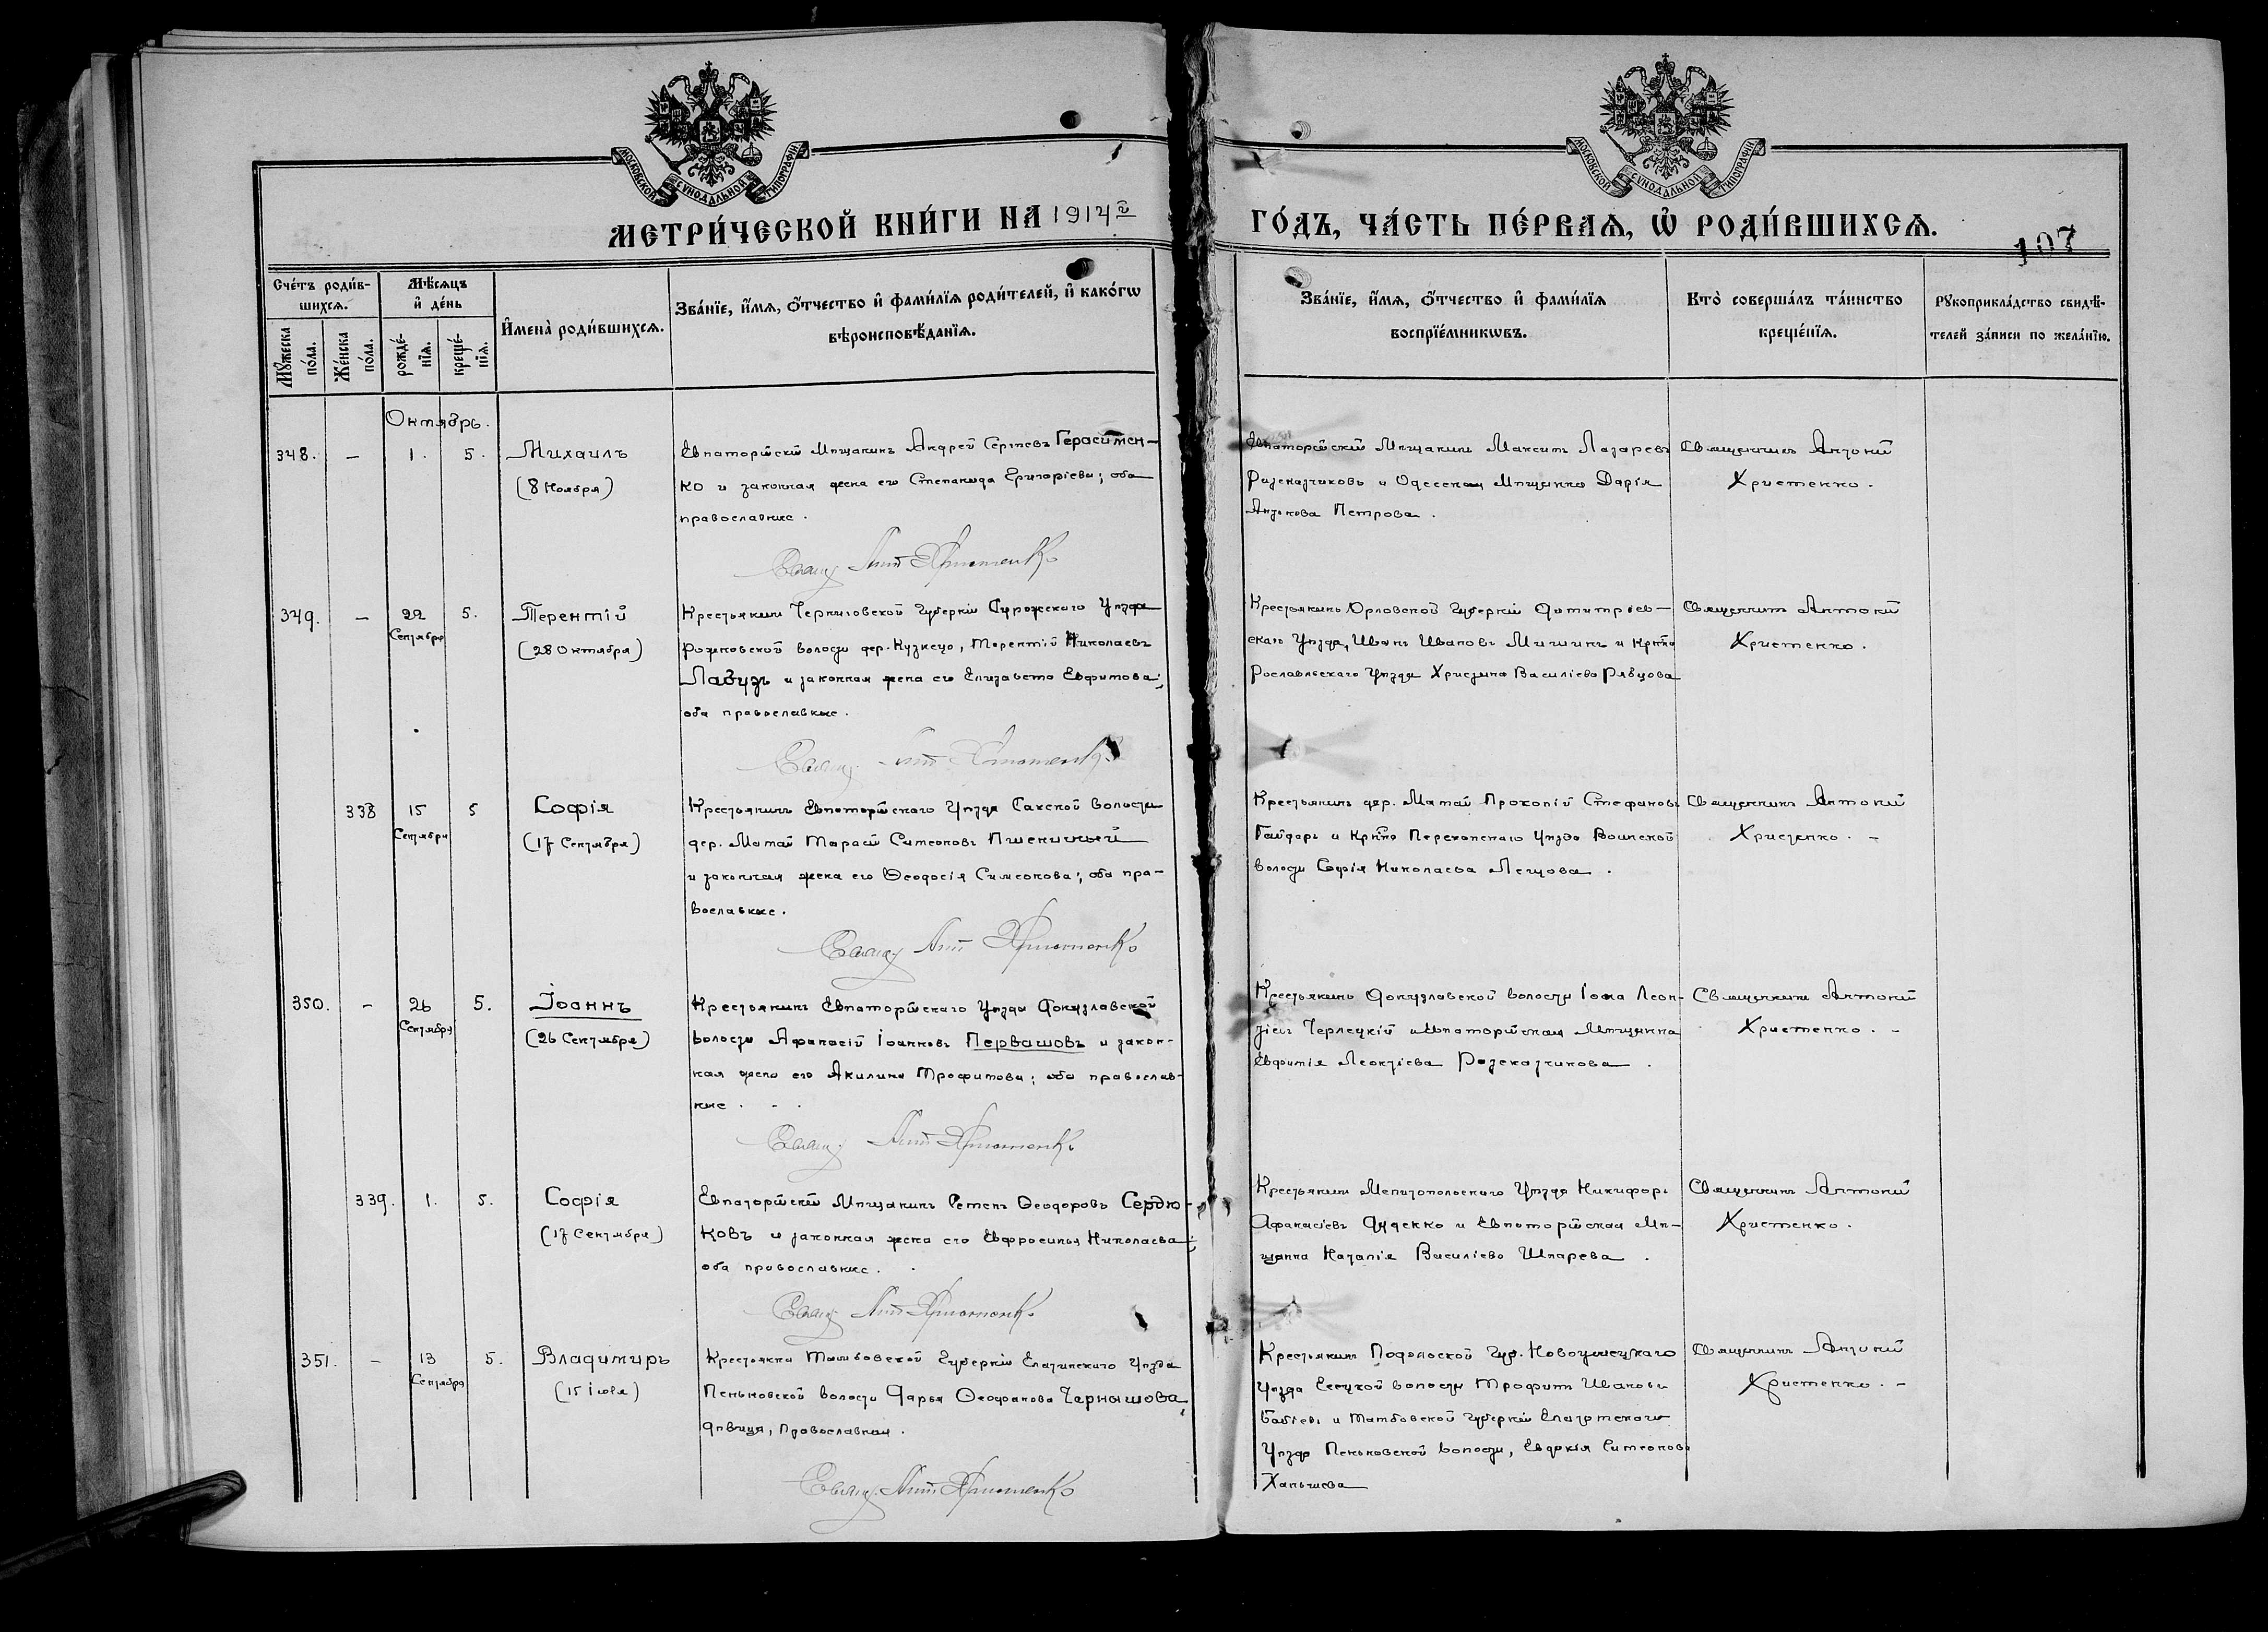 МОСКОВСКОЙ СѴНОДАЛЬНОЙ ТИПОГРАФІИ
МОСКОВСКОЙ СѴНОДАЛЬНОЙ ТИПОГРАФІИ
МЕТРИ́ЧЕСКОЙ КНИ́ГИ НА 1914 й
ГО́ДЪ, ЧА́СТЬ ПЕ́РВАѦ, Ѡ҆ РОДИ́ВШИХСѦ.
107
Сче́тъ роди́в-
шихсѧ.
Мѣ́сѧцъ
и҆ де́нь
Мꙋ́жеска по́ла.
Же́нска по́ла.
рожде́-
нїѧ.
креще́-
нїѧ.
И҆мена̀ роди́вшихсѧ.
Зва́нїе, и҆́мѧ, ѻ҆́тчество и҆ фами́лїѧ роди́телей, и҆ како́гѡ
вѣроисповѣ́данїѧ.
Зва́нїе, и҆́мѧ, ѻ҆́тчество и҆ фами́лїѧ
воспрїе́мникѡвъ.
Кто̀ соверша́лъ та́инство
креще́нїѧ.
Рꙋкоприкла́дство свидѣ́-
телей за́писи по жела́нїю.
Октябрь.
348. — 1. 5. Михаилъ
(8 Ноября)
Евпаторійскій Мѣщанинъ Андрей Сергѣевъ Герасимен-
ко и законная жена его Степанида Григоріева; оба
православные.
Свящ. Ант Христенко
Евпаторійскій Мѣщанинъ Максимъ Лазаревъ
Разсказчиковъ и Одесская Мѣщанка Дарія
Антонова Петрова.
Священникъ Антоній
Христенко.
349. — 22 Сентября 5. Терентій
(28 Октября)
Крестьянинъ Черниговской Губерніи Суражскаго Уѣзда
волости дер. Терентій Николаевъ
Лавузъ и законная жена его Елизавета Евфимова;
оба православные.
Свящ. Ант Христенко
Крестьянинъ Орловской Губерніи Димитріев-
скаго Уѣзда, Иванъ Ивановъ Мишинъ и Кр-нка
Рославльскаго Уѣзда Христина Василіева Рябцова
Священникъ Антоній
Христенко.
338 15 Сентября 5 Софія
(17 Сентября)
Крестьянинъ Евпаторійскаго Уѣзда Сакской волости
дер. Матай Тарасій Симеоновъ Пшеничный
и законная жена его Ѳеодосія Симеонова; оба пра-
вославные.
Свящ. Ант Христенко
Крестьянинъ дер. Матай Прокопій Стефановъ
Гайдаръ и Кр-нка Перекопскаго Уѣзда Воинской
волости Софія Николаева
Священникъ Антоній
Христенко. —
350. — 26 Сентября 5. Іоаннъ
(26 Сентября)
Крестьянинъ Евпаторійскаго Уѣзда Донузлавской
волости Афанасій Іоанновъ Первашовъ и закон-
ная жена его Акилина Трофимова; оба православ-
ные.
Свящ. Ант Христенко
Крестьянинъ Донузлавской волости Іона Леон-
тіевъ Терлецкій и Евпаторійская Мѣщанка
Евфимія Леонтіева Разсказчикова.
Священникъ Антоній
Христенко. —
339. 1. 5. Софія
(17 Сентября)
Евпаторійскій Мѣщанинъ Ѳеодоровъ Сердю-
ковъ и законная жена его Евфросинья Николаева;
оба православные.
Свящ. Ант Христенко
Крестьянинъ Мелитопольскаго Уѣзда Никифоръ
Афанасіевъ и Евпаторійская Мѣ-
щанка Наталія Василіева Шпарева.
Священникъ Антоній
Христенко.
351. — 13 Сентября 5. Владимиръ
(15 Іюля)
Крестьянка Тамбовской Губерніи Елатомскаго Уѣзда
Пеньковской волости Дарья Ѳеофанова Чернышова,
дѣвица, православная.
Свящ. Ант Христенко
Крестьянинъ Подольской Губ. Новоушицкаго
Уѣзда волости Трофимъ Ивановъ
и Тамбовской Губерніи Елатомскаго
Уѣзда Пеньковской волости, Евдокія Симеонова
Ханышева
Священникъ Антоній
Христенко. —